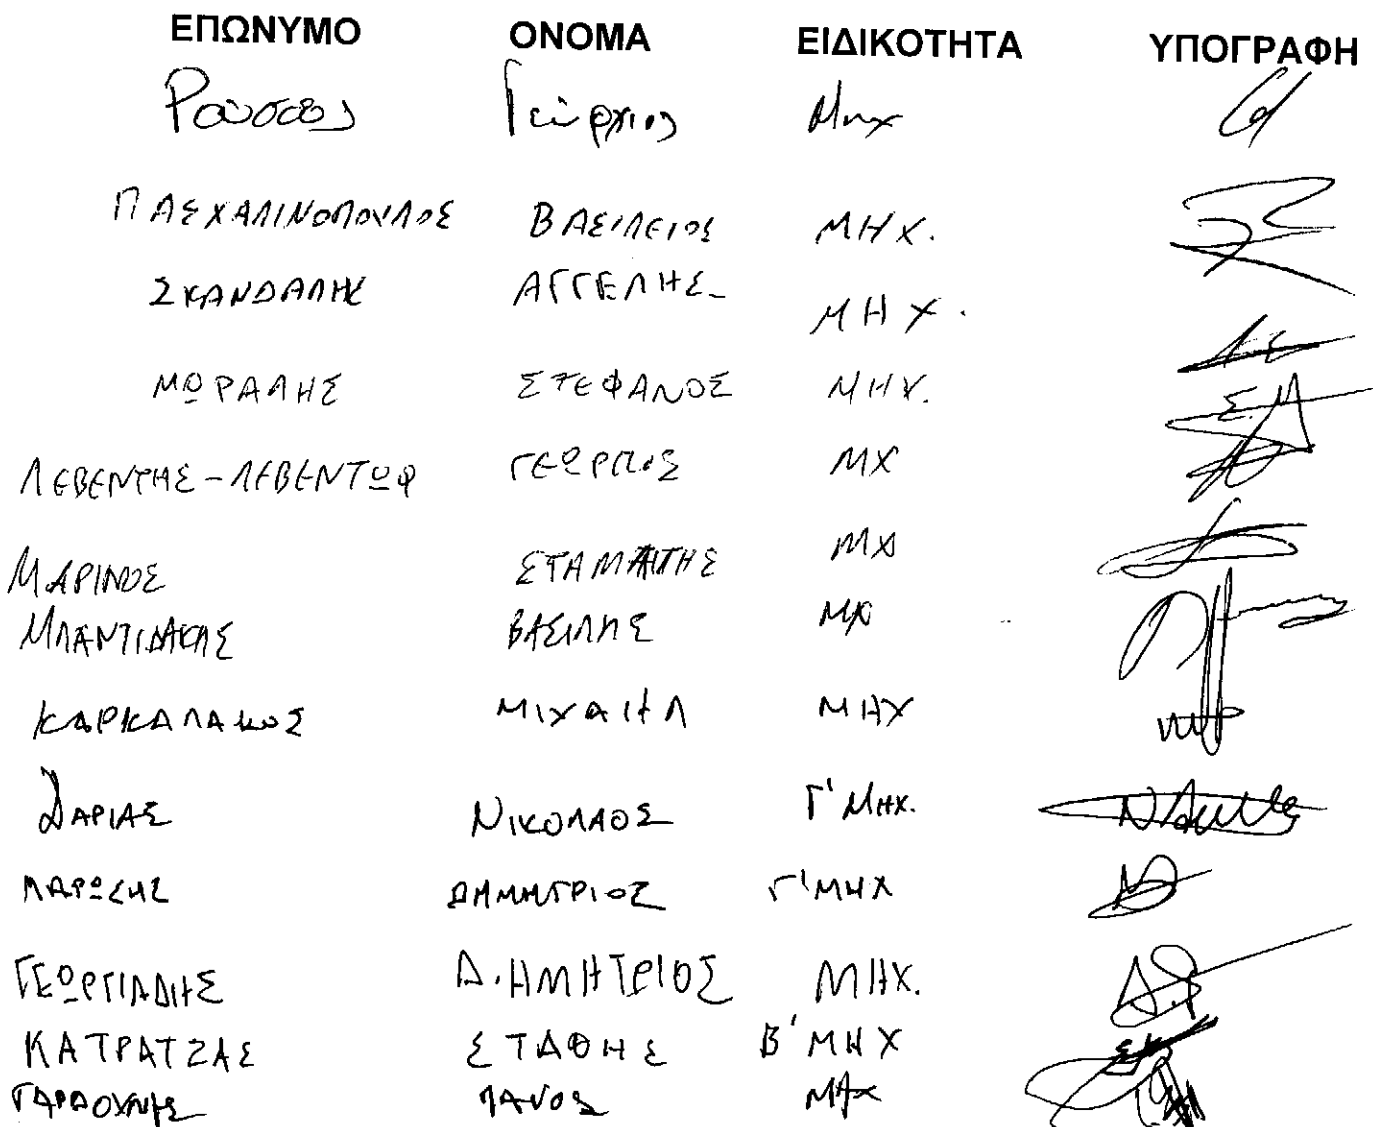 ΕΠΩΝΥΜΟ ΟΝΟΜΑ ΕΙΔΙΚΟΤΗΤΑ ΥΠΟΓΡΑΦΗ
Ρούσσος Γεώργιος Μηχ
ΠΑΣΧΑΛΙΝΟΠΟΥΛΟΣ ΒΑΣΙΛΕΙΟΣ ΜΗΧ.
ΣΚΑΝΔΑΛΗΣ ΑΓΓΕΛΗΣ ΜΗΧ.
ΜΩΡΑΛΗΣ ΣΤΕΦΑΝΟΣ ΜΗΧ.
ΛΕΒΕΝΤΗΣ-ΛΕΒΕΝΤΩΦ ΓΕΩΡΓΙΟΣ ΜΧ
ΜΑΡΙΝΟΣ ΣΤΑΜΑΤΗΣ ΜΧ
ΜΠΑΝΤΙΔΑΚΗΣ ΒΑΣΙΛΗΣ ΜΧ
ΚΑΡΚΑΛΑΚΟΣ ΜΙΧΑΗΛ ΜΗΧ
ΔΑΡΙΑΣ ΝΙΚΟΛΑΟΣ Γ' ΜΗΧ.
ΛΑΡΩΣΗΣ ΔΗΜΗΤΡΙΟΣ Γ' ΜΗΧ
ΓΕΩΡΓΙΑΔΗΣ ΔΗΜΗΤΡΙΟΣ ΜΗΧ.
ΚΑΤΡΑΤΖΑΣ ΣΤΑΘΗΣ Β' ΜΗΧ
ΠΑΝΟΣ ΜΗΧ